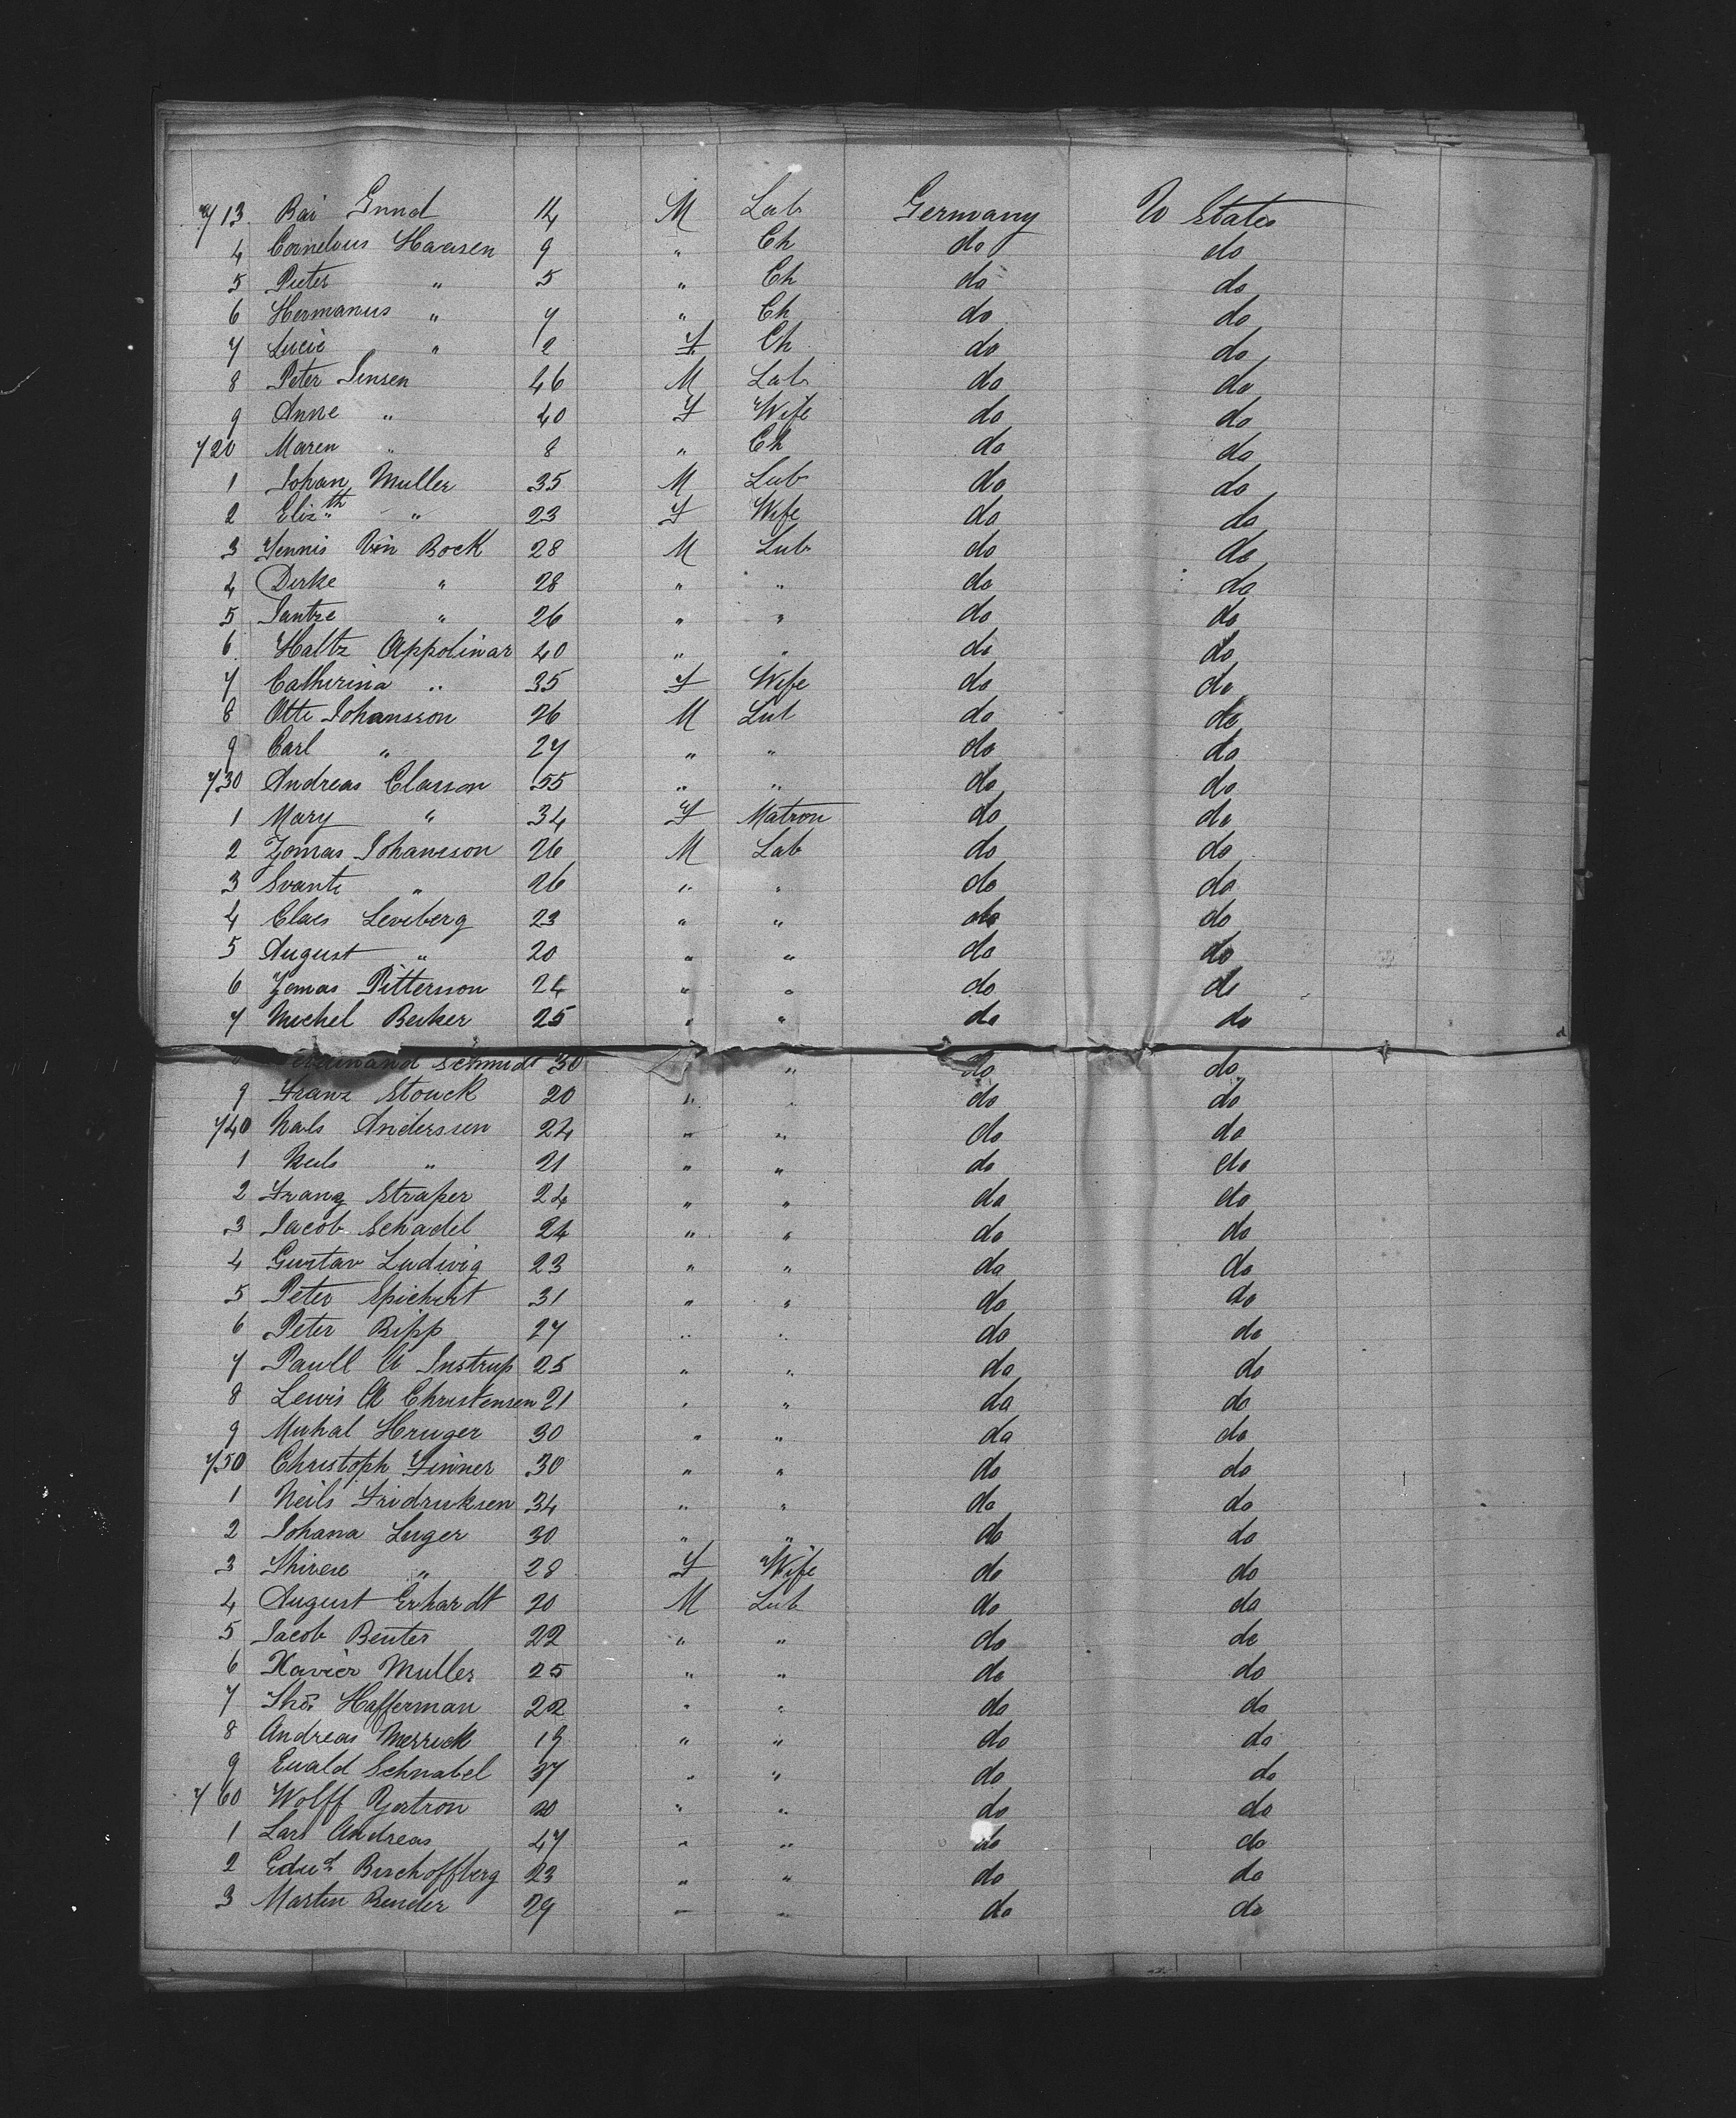 713. Bai Gnnd 14 M Lab Germany U States
4 Cornelius Haasen 9 " Ch do do
5 Pieter " 5 " Ch do do
6 Hermanus " 7 " Ch do do
7 Lucie " 2 F Ch do do
8 Peter Jensen 46 M Lab do do
9 Anne " 40 F Wife do do
720 Maren " 8 " Ch do do
1 Johan Muller 35 M Lab do do
2 Elizth " 23 F Wife do do
3 Yennis Von Bock 28 M Lab do do
4 Dirke " 28 " " do do
5 Jantze " 26 " " do do
6 Haltz Appolinar 40 " " do do
7 Catherina " 35 F Wife do do
8 Otto Johansson 26 M Lab do do
9 Carl " 27 " " do do
730 Andreas Classon 55 " " do do
1 Mary " 34 F Matron do do
2 Jomas Johanson 26 M Lab do do
3 Svante " 26 " " do do
4 Claes Leveberg 23 " " do do
5 August " 20 " " do do
6 Jomas Pitterson 24 " " do do
7 Michel Becker 25 " " do do
Schmidt 30 " do do
9 Franz Stouck 20 " " do do
740 Nals Anderssen 24 " " do do
1 Neils " 21 " " do do
2 Franz Straper 24 " " do do
3 Jacob Schadel 24 " " do do
4 Gustav Ludwig 23 " " do do
5 Peter Spichert 31 " " do do
6 Peter Ripp 27 " " do do
7 Paull A Instrup 25 " " do do
8 Lewis A Christensen 21 " " do do
9 Michal Hruger 30 " " do do
750 Christoph Finner 30 " " do do
1 Neils Fridricksen 34 " " do do
2 Johana Luger 30 " " do do
3 Thirese " 28 F Wife do do
4 August Erhardt 20 M Lab do do
5 Jacob Benter 22 " " do do
6 Xavier Muller 25 " " do do
7 Thos Hafferman 22 " " do do
8 Andreas Merrick 19 " " do do
9 Ewald Schnabel 37 " " do do
760 Wolff 20 " " do do
1 Lars Andreas 47 " " do do
2 Edwd Bischoffberg 23 " " do do
3 Martin Bender 29 " " do do